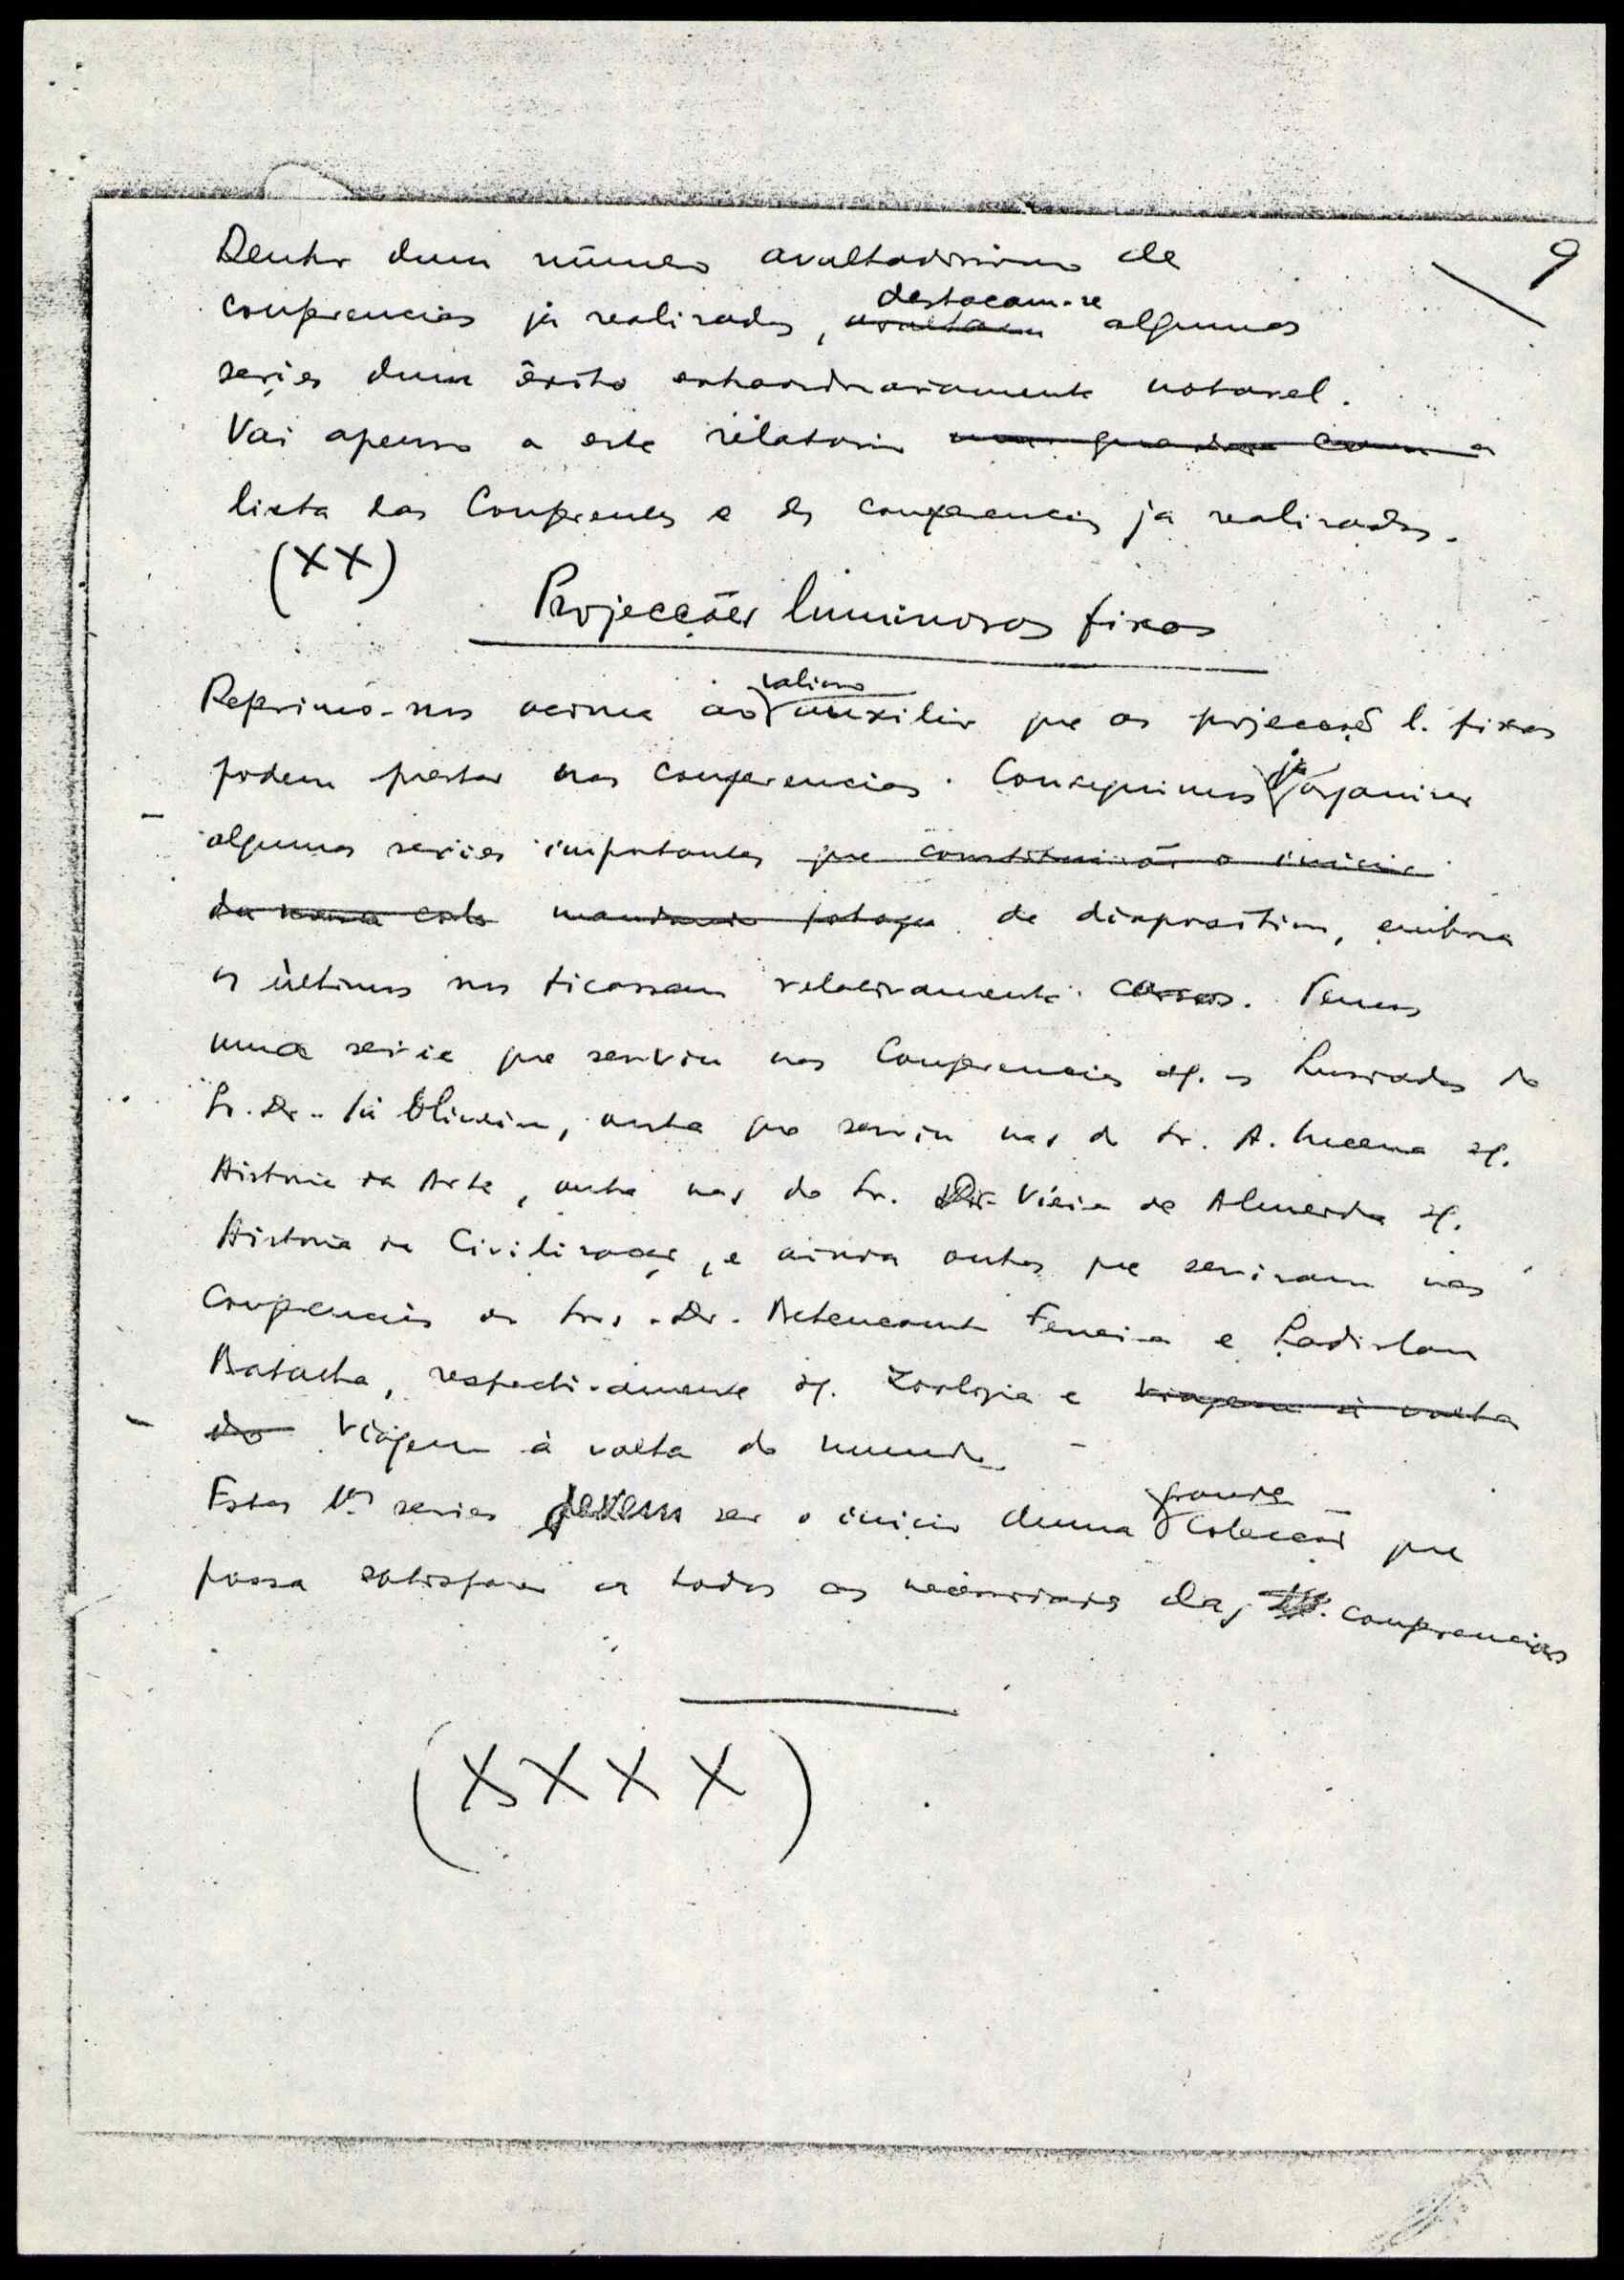 9
Dentro dum número avultadissimo de
conferencias já realizadas, avultam destacam-se algumas
series dum êxito extraordinariamente notavel.
Vai apenso a este relatorio a
lista dos Conferentes e das conferencias já realizadas.
(XX)
Projecções luminosas fixas
Referimo-nos acima ao valioso auxilio que as projecções l. fixas
podem prestar nas conferencias. Conseguimos já organizar
algumas series importantes que constituirão o inicio
da nossa de diapositivos, embora
os últimos nos ficassem relativamente caros. Temos
uma serie que serviu nas Conferencias os Lusiadas do
Sr. Dr. Sá Oliveira, outra que serviu nas do Sr. A. Lucena
Historia da Arte, outra nas do Sr. Dr. Vieira de Almeida
Historia da Civilização, e ainda outras que serviram nas
Conferencias dos Srs. Dr. Betencourt Ferreira e Ladislau
Batalha, respectivamente Zoologia e viagem à volta
do Viagem à volta do mundo.
Estas 1as series devem ser o inicio duma grande Colecção que
possa satisfazer a todas as necessidades das conferencias
(XXXX)